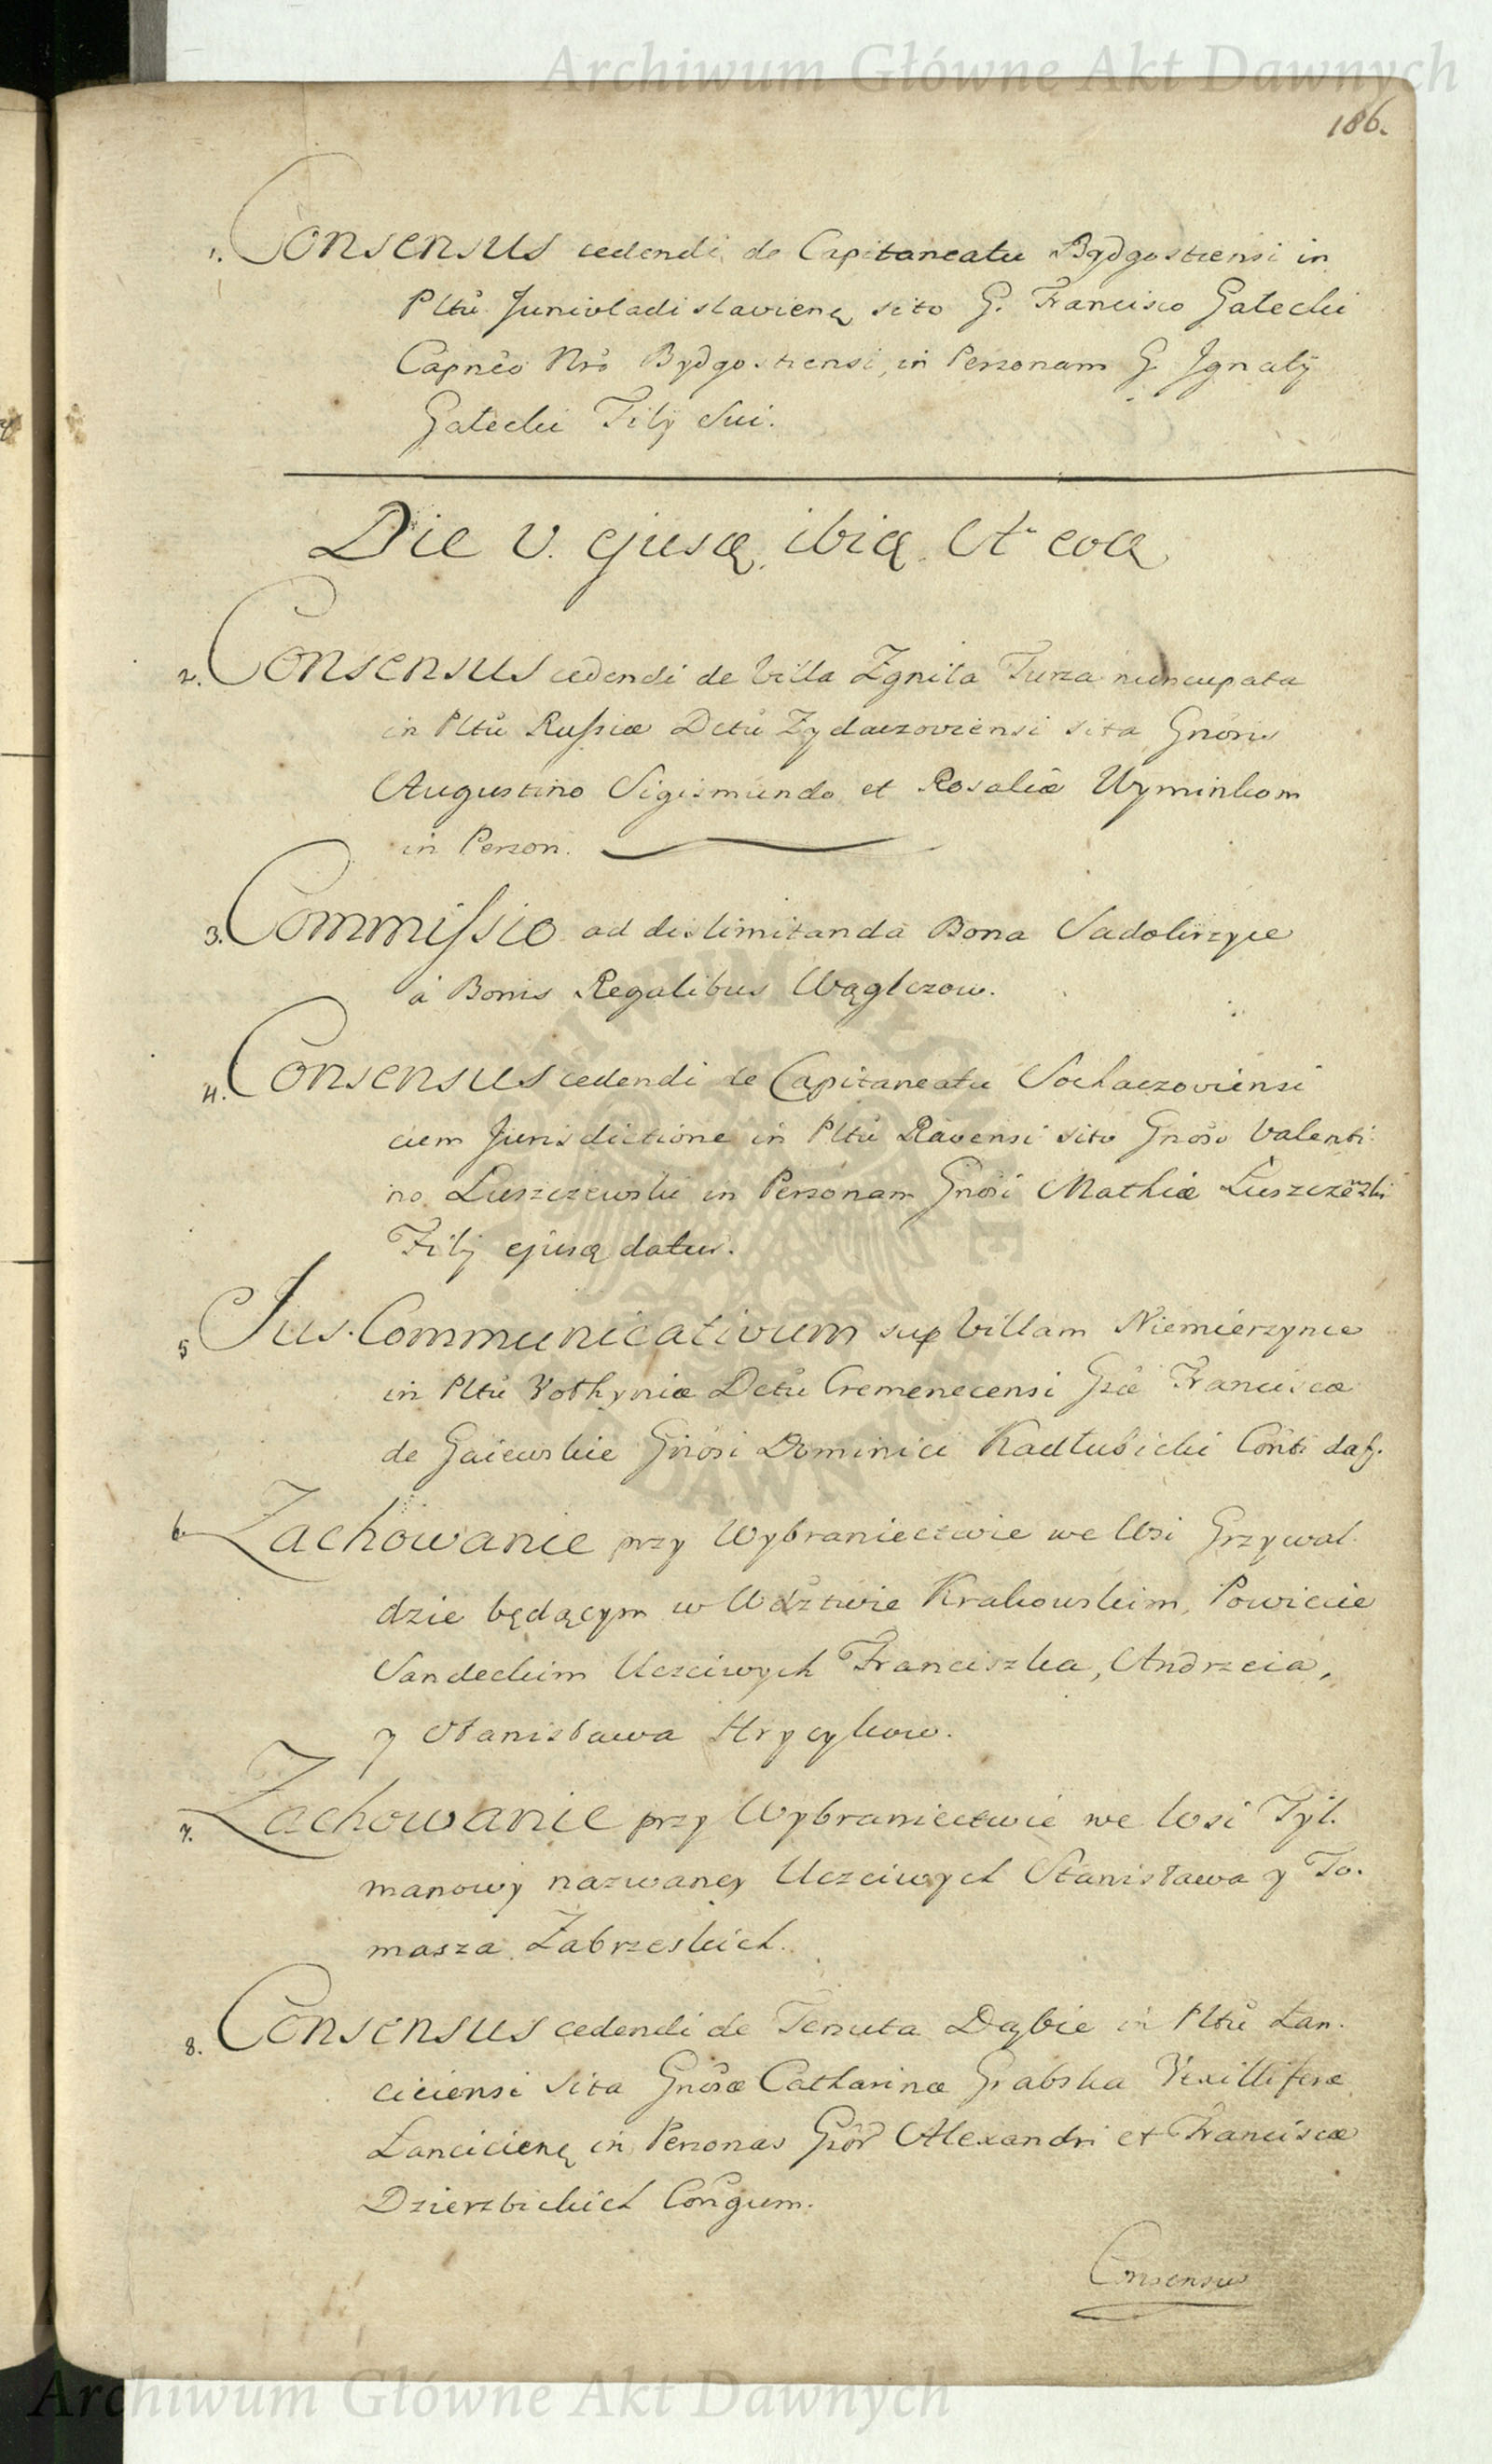 Archiwum Główne Akt Dawnych
186.
1. Consensus cedendi de Capitaneatu Bydgostiensi in
Pltu Junivladislavienę sito G. Francisco Gałecki
Capneo Nro Bydgostiensi, in Personam G. Jgnatÿ
Gałecki Filÿ Sui.
Die V. ejusq, ibiq. Et eoq
2. Consensus cedendi de Villa Zgniła Turza nuncupata
in Pltu Russiæ Dctu Zydaczoviensi sita Gnoris
Augustino Sigismundo et Rosaliæ Wyminkom
in Person.
3. Commissio ad dislimitanda Bona Sadokrzyce
à Bonis Regalibus Wąglczow.
4. Consensus cedendi de Capitaneatu Sochaczoviensi
cum Jurisdictione in Pltu Ravensi sito Gnoso Valenti
no Luszczewski in Personam Gnosi Mathiæ Luszczewski
Filÿ ejusq datus.
5 Jus Communicativum sup Villam Niemierzynce
in Pltu Volhyniæ Dctu Cremenecensi Gsæ Franciscæ
de Gaiewskie Gnosi Dominici Kadłubicki Conti dat.
6. Zachowanie przy Wybraniectwie we Wsi Grzywał
dzie będącym w Wdztwie Krakowskim, Powiecie
Sandeckim Uczciwych Franciszka, Andrzeia,
y Stanisława Hrycykow.
7. Zachowanie przy Wybraniectwie we Wsi Tyl.
manowy nazwaney Uczciwych Stanisława y To.
masza Zabrzeskich.
8. Consensus cedendi de Tenuta Dąbie in Pltu Lan.
ciciensi sita Gnosæ Catharinæ Grabska Vexilliferæ
Lancicienę in Personas Gsor Alexandri et Franciscæ
Dzierzbickich Congum.
Consensus
Archiwum Główne Akt Dawnych